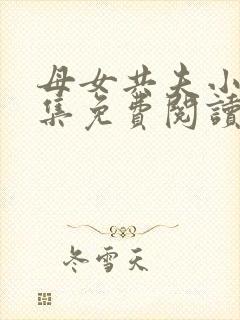 母女共夫小
集免費閱讀
冬雪天